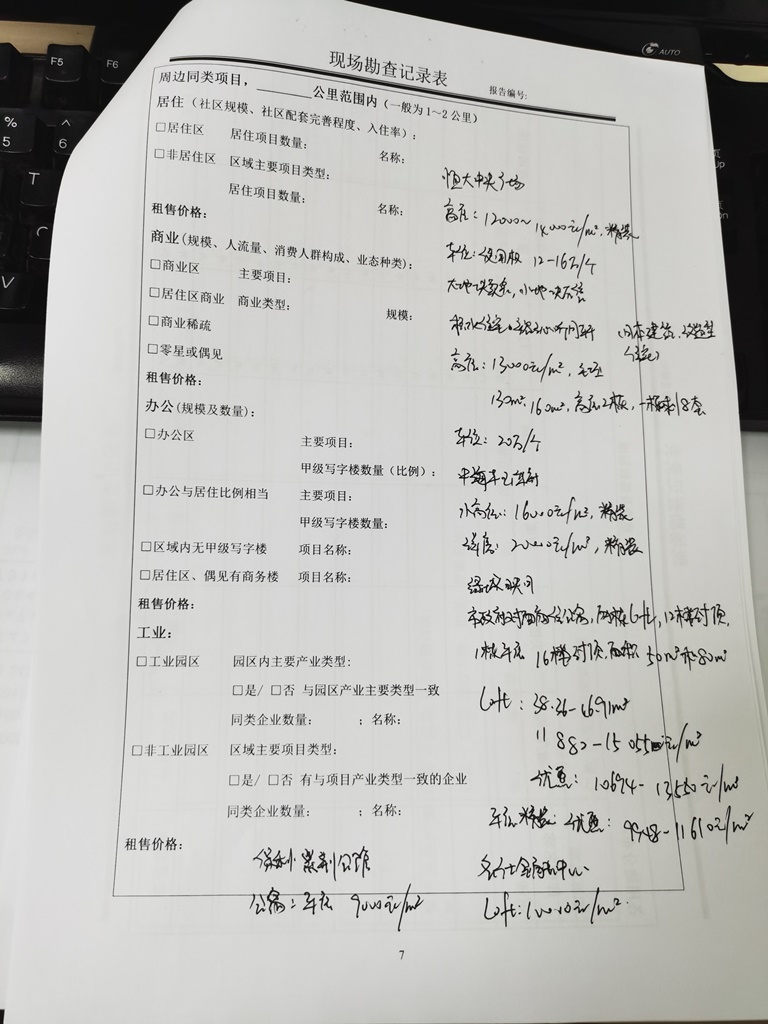 现场勘查记录表
报告编号:
周边同类项目，________公里范围内（一般为1～2公里）
居住（社区规模、社区配套完善程度、入住率）:
□居住区 居住项目数量: 名称:
□非居住区 区域主要项目类型: 恒大中央广场
居住项目数量: 名称: 高层: 12000~14000元/m², 精装
租售价格:
车位: 使用权 12-16万/个
商业(规模、人流量、消费人群构成、业态种类):
□商业区 主要项目:
□居住区商业 商业类型: 规模:
□商业稀疏
□零星或偶见 高层: 13000元/m², 毛坯
租售价格:
130m², 160m², 高层2栋, 一栋剩18套
办公(规模及数量):
□办公区 主要项目: 车位: 20万/个
甲级写字楼数量(比例):
□办公与居住比例相当 主要项目:
甲级写字楼数量: 小高层: 16000元/m², 精装
□区域内无甲级写字楼 项目名称: 洋房: 20000元/m², 精装
□居住区、偶见有商务楼 项目名称:
租售价格:
工业: 1栋平层 16栋封顶, 面积 50m²和80m²
□工业园区 园区内主要产业类型:
□是/ □否 与园区产业主要类型一致 Loft: 38.36-66.91m²
同类企业数量: ; 名称: 11882-15055元/m²
□非工业园区 区域主要项目类型:
□是/ □否 有与项目产业类型一致的企业 优惠: 10694-13550元/m²
同类企业数量: ; 名称: 平层精装: 优惠: 9948-11610元/m²
租售价格:
公寓: 平层 9000元/m² Loft: 10000元/m².
7
F5
F6
%
5
^
6
T
C
V
AUTO